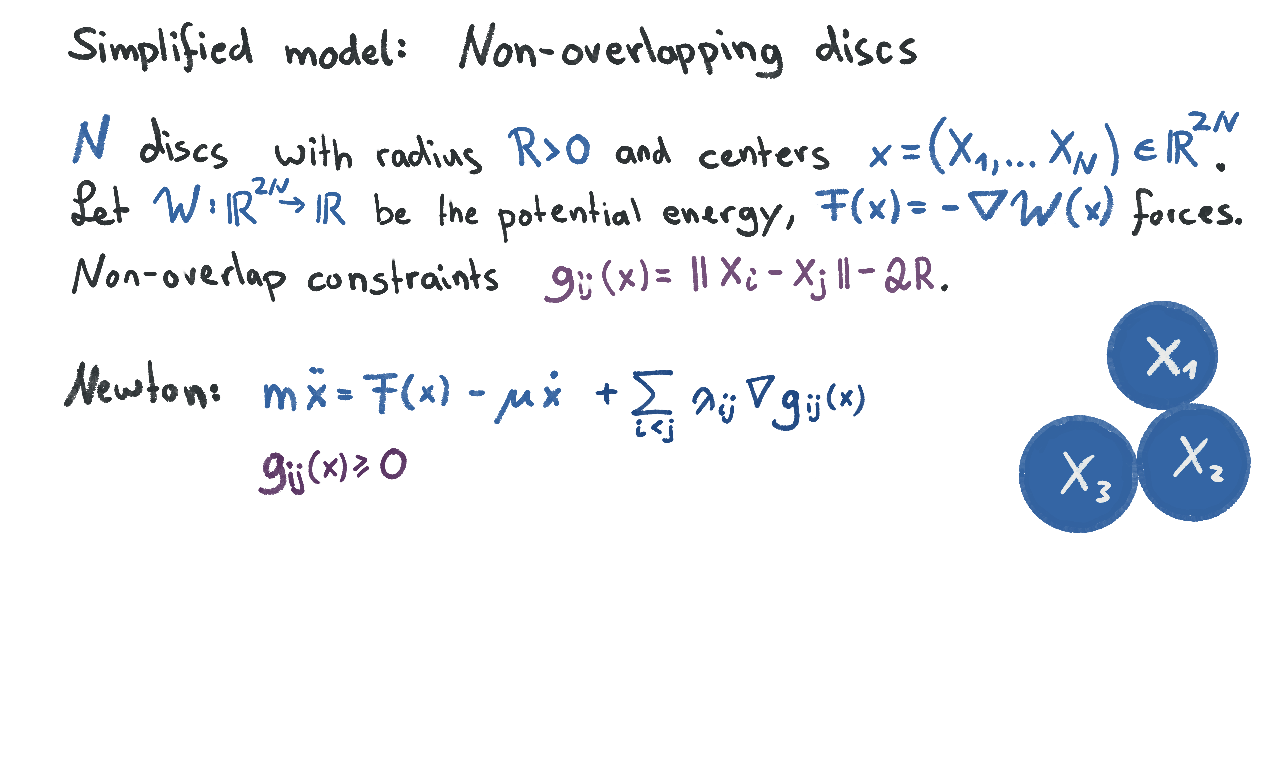 Simplified model: Non-overlapping discs
N discs with radius R>0 and centers x=(X₁,... X_N) ∈ ℝ²ᴺ.
Let W: ℝ²ᴺ→ ℝ be the potential energy, F(x)= -∇W(x) forces.
Non-overlap constraints g_ij(x)= ||X_i - X_j|| - 2R.
Newton: mẍ = F(x) - μẋ + ∑_{i<j} λ_ij ∇g_ij(x)
g_ij(x) ≥ 0
X₁
X₃ X₂